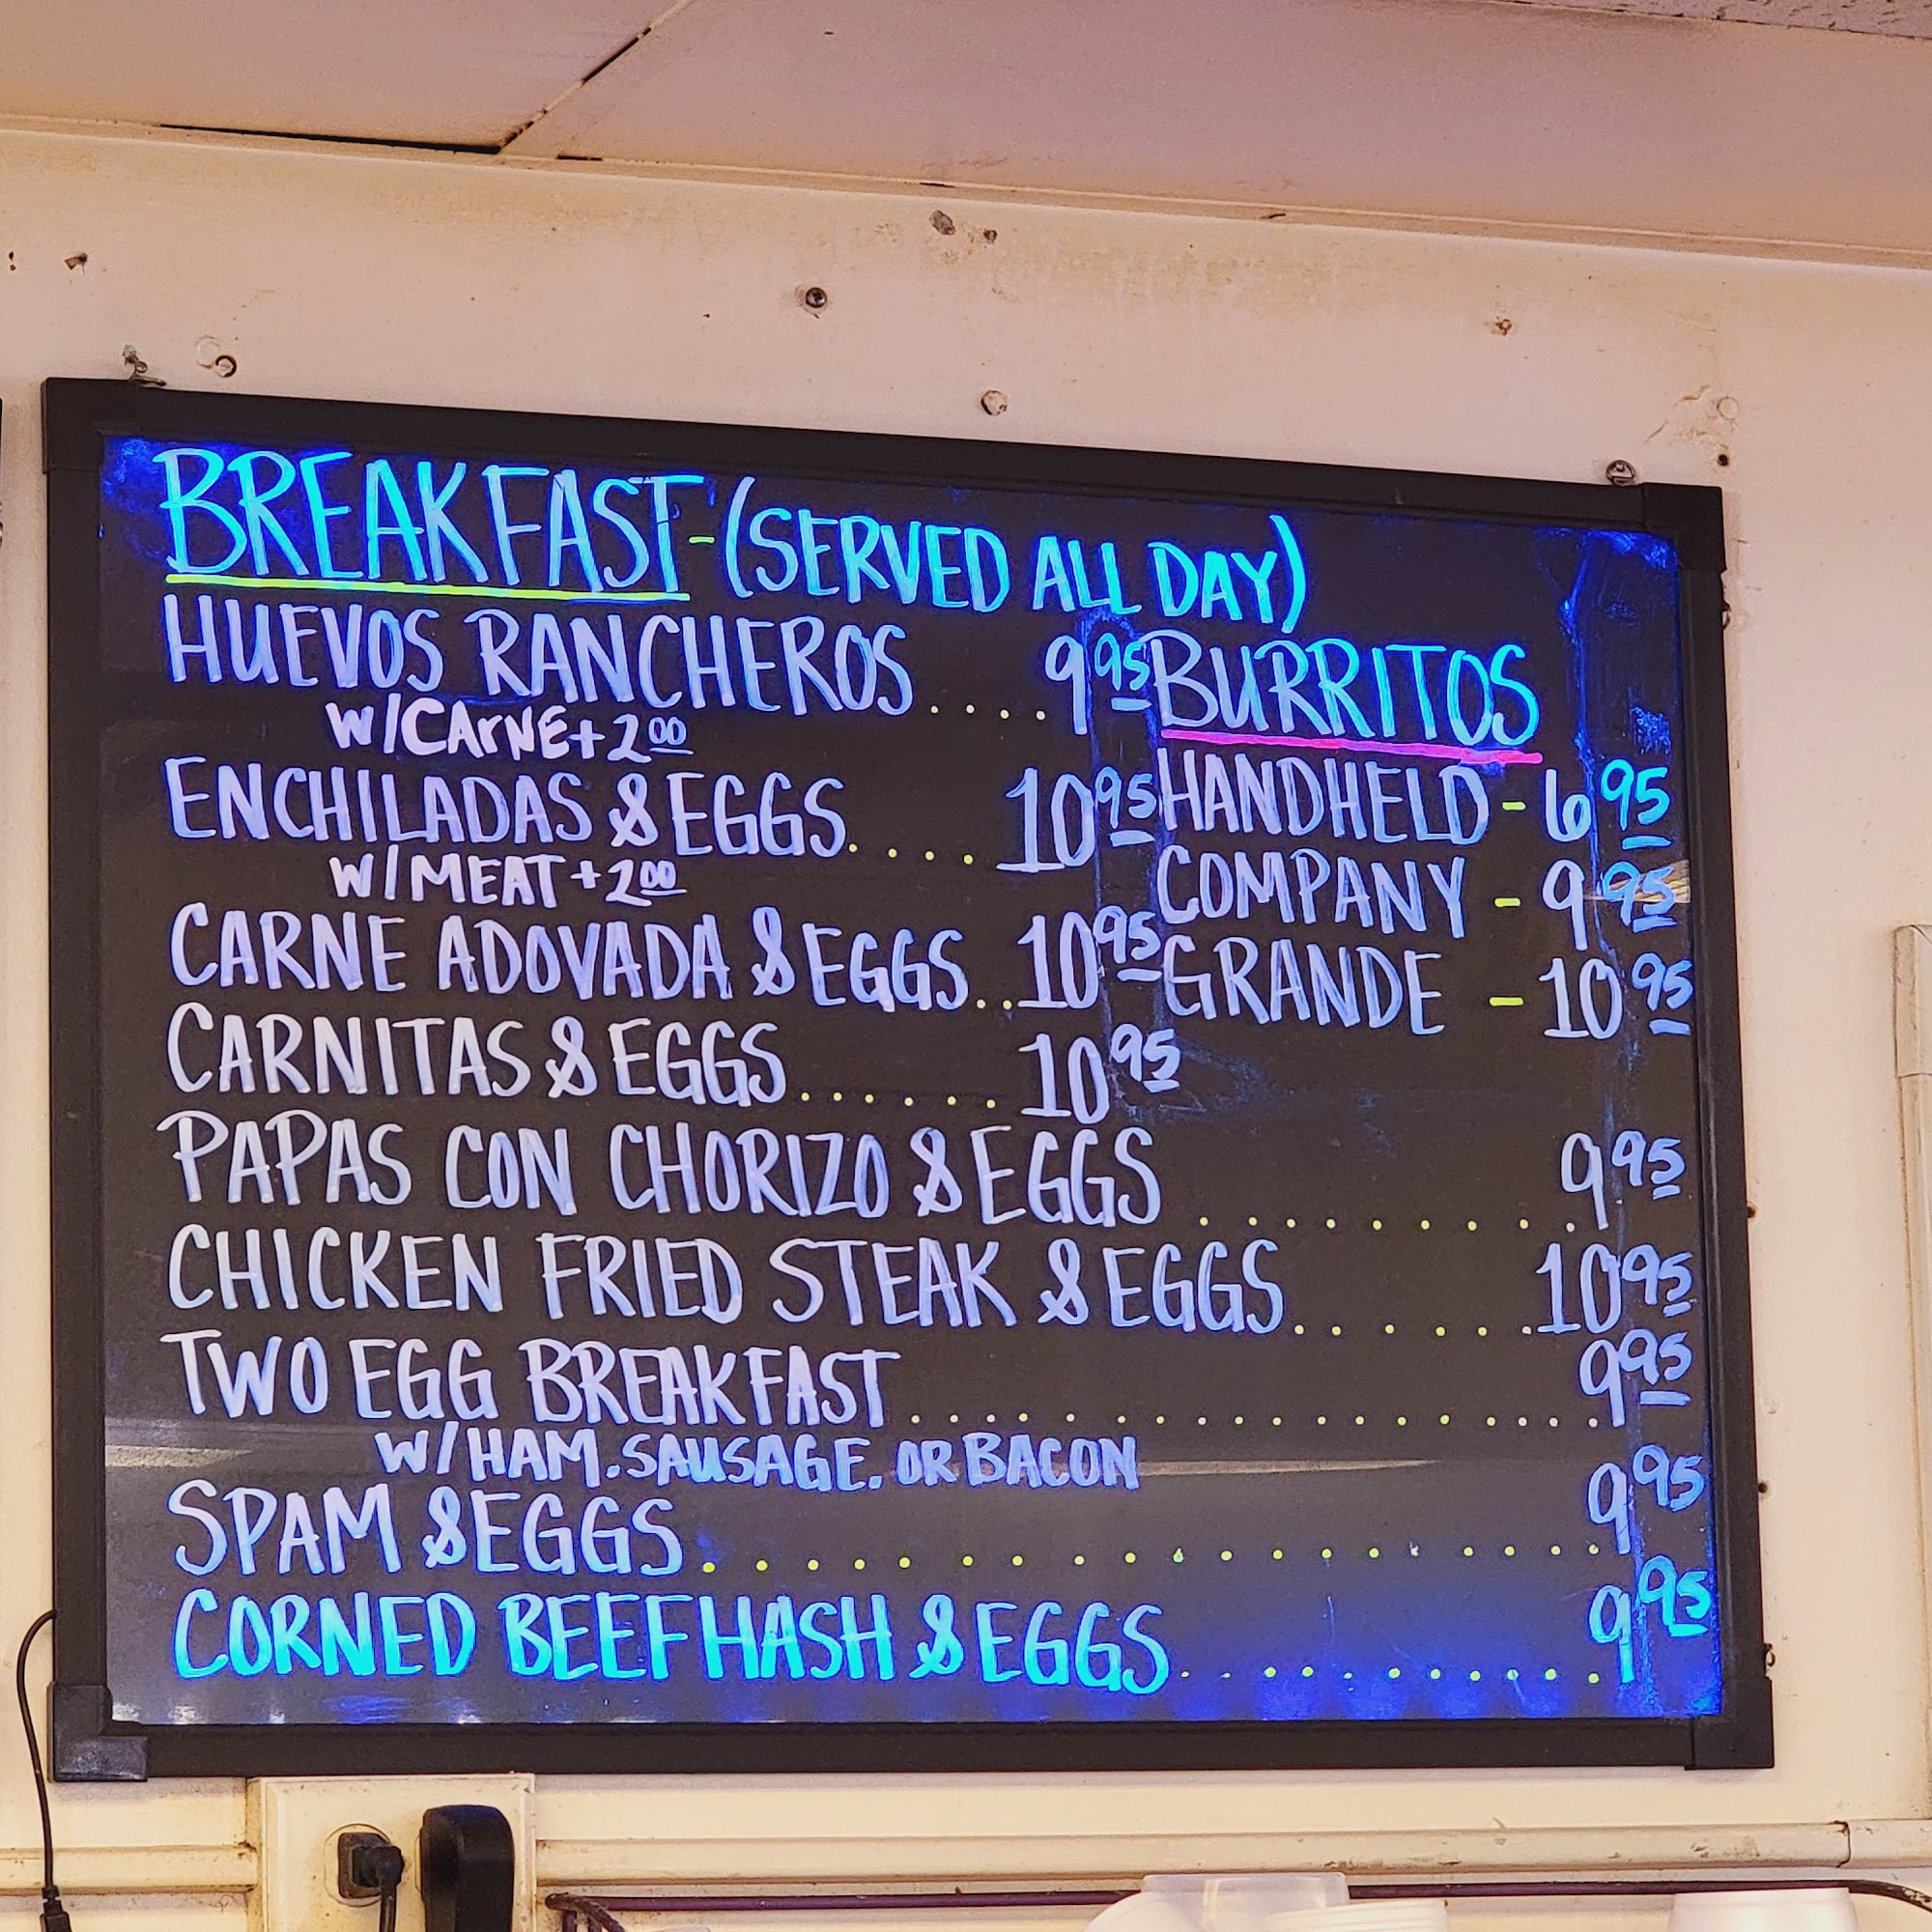 BREAKFAST-(SERVED ALL DAY)
HUEVOS RANCHEROS....9.95
W/CARNE+2.00
ENCHILADAS & EGGS....10.95
W/MEAT+2.00
CARNE ADOVADA & EGGS...10.95
CARNITAS & EGGS......10.95
BURRITOS
HANDHELD-6.95
COMPANY-9.95
GRANDE-10.95
PAPAS CON CHORIZO & EGGS.........9.95
CHICKEN FRIED STEAK & EGGS......10.95
TWO EGG BREAKFAST....................9.95
W/HAM.SAUSAGE.OR BACON
SPAM & EGGS..................9.95
CORNED BEEF HASH & EGGS..........9.95